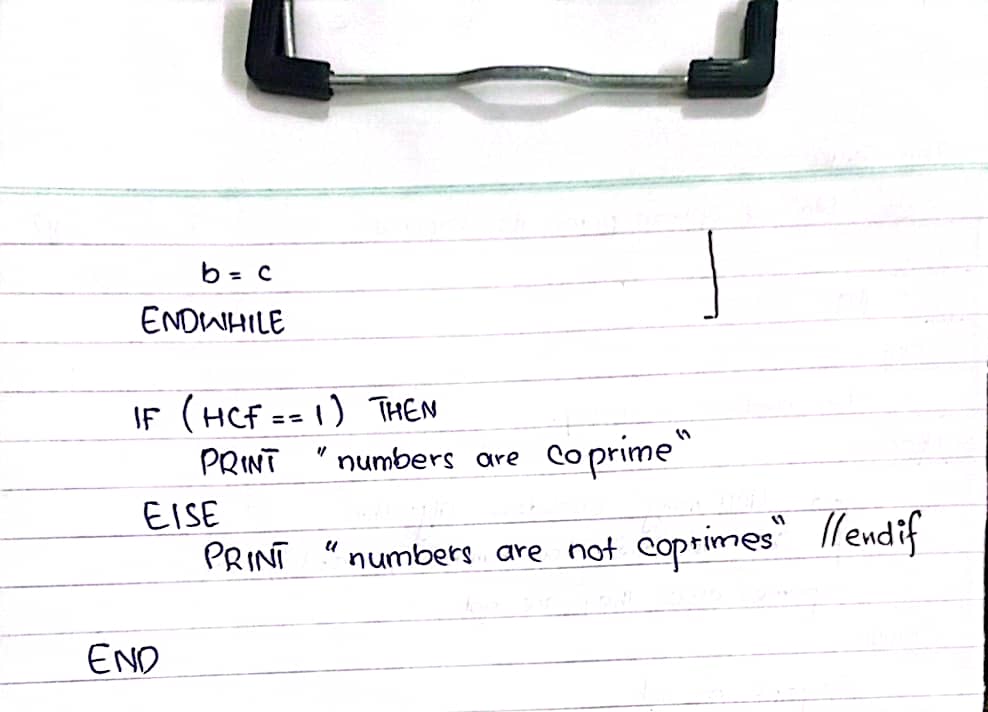 b = c
ENDWHILE
IF (HCF == 1) THEN
PRINT "numbers are coprime"
ELSE
PRINT "numbers are not coprimes" //endif
END